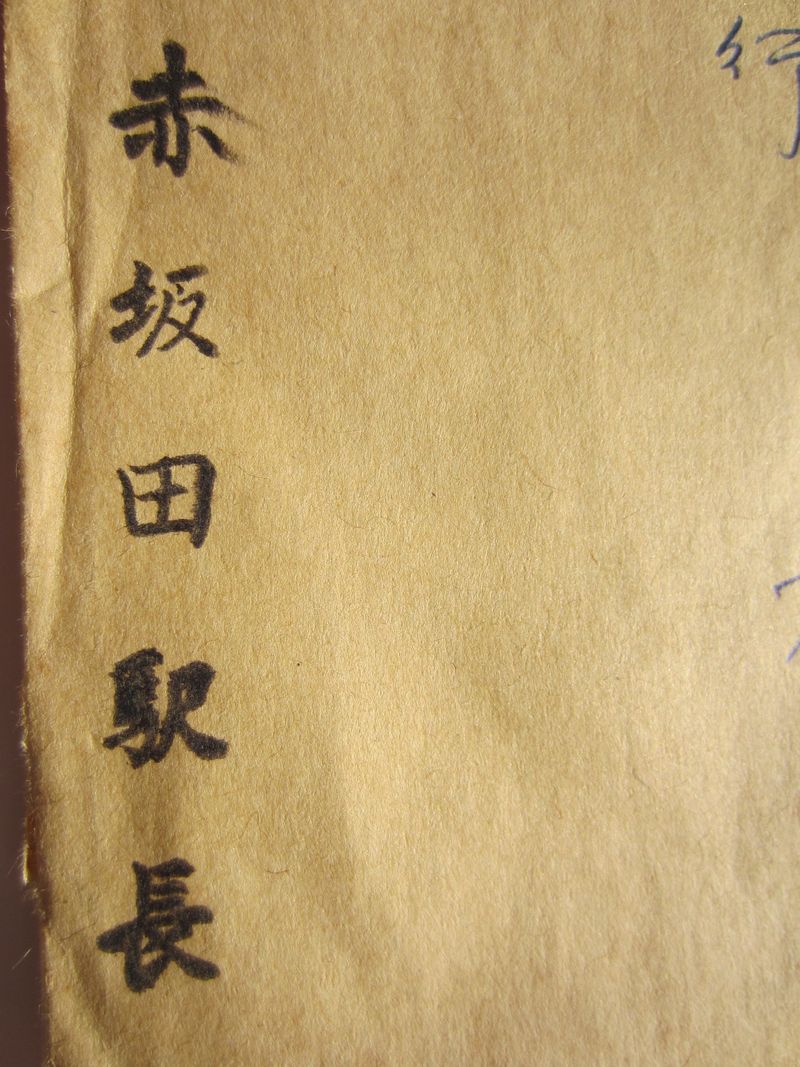 行
赤坂田駅長